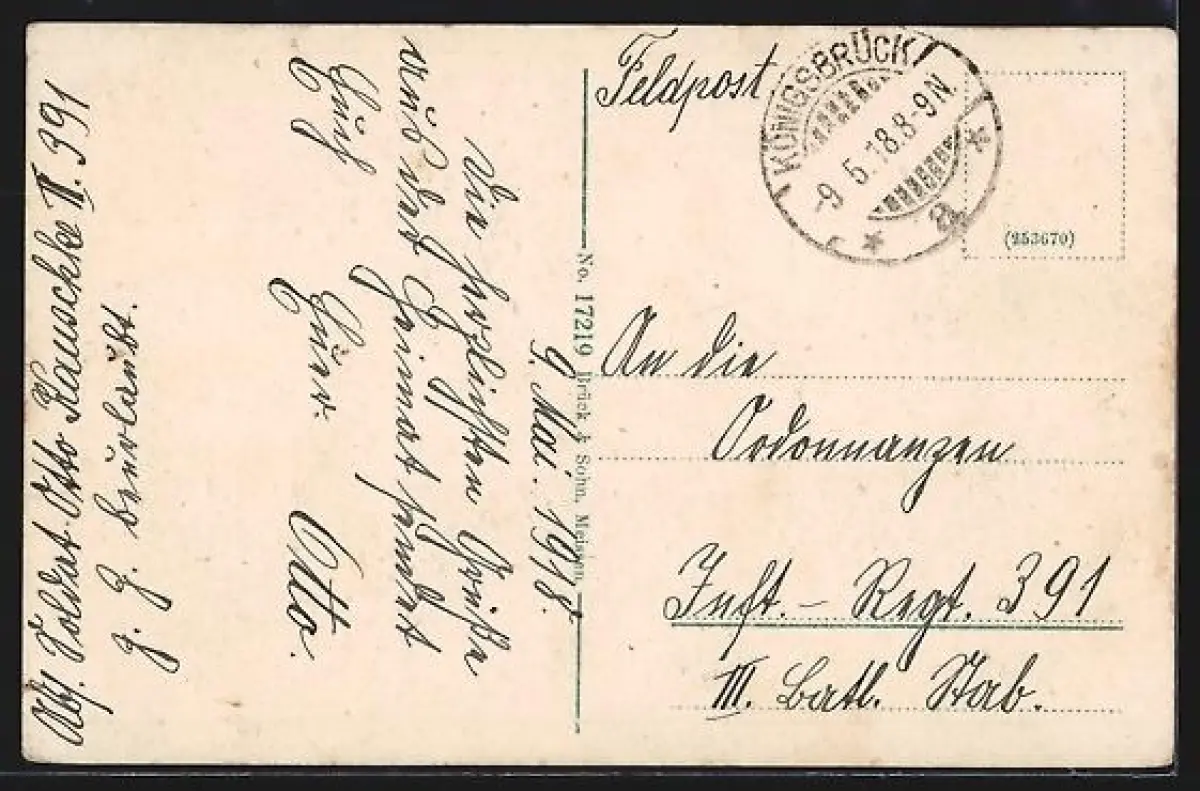 Feldpost.
KÖNIGSBRÜCK
-9.5.18.8-9N.
* a *
(253670)
An die
Ordonnanzen
Inft.- Regt. 391
III. Batl. Stab.
No. 17219 Brück & Sohn, Meissen.
9. Mai. 1918.
Die herzlichsten Grüße
aus der Heimat sendet
Euch
Euer
Otto.
Abs. Soldat Otto Kauschke II. 391
z. Z. beurlaubt.